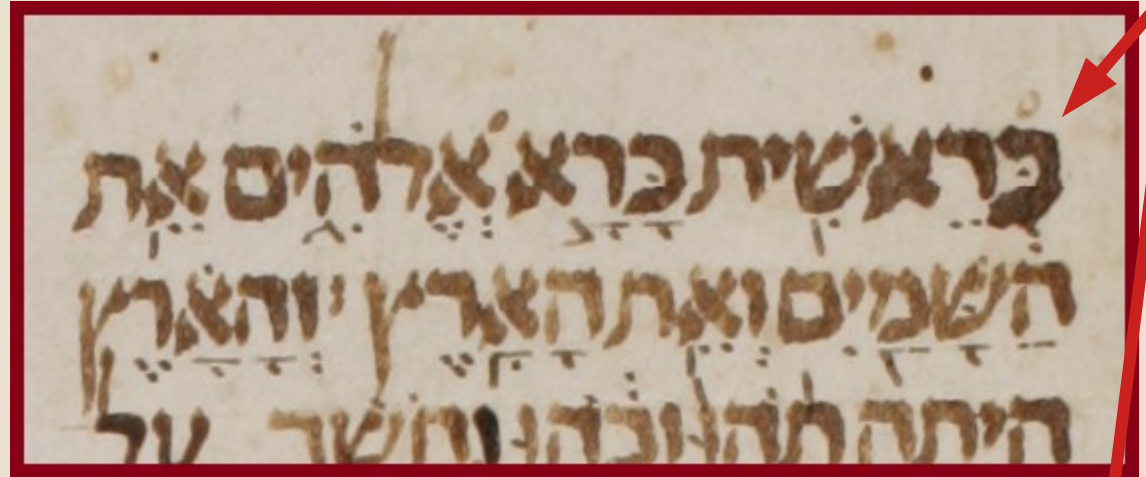 בְּרֵאשִׁ֖ית בָּרָ֣א אֱלֹהִ֑ים אֵ֥ת
הַשָּׁמַ֖יִם וְאֵ֥ת הָאָֽרֶץ וְהָאָ֗רֶץ
היתה תהו ובהו וחשך על